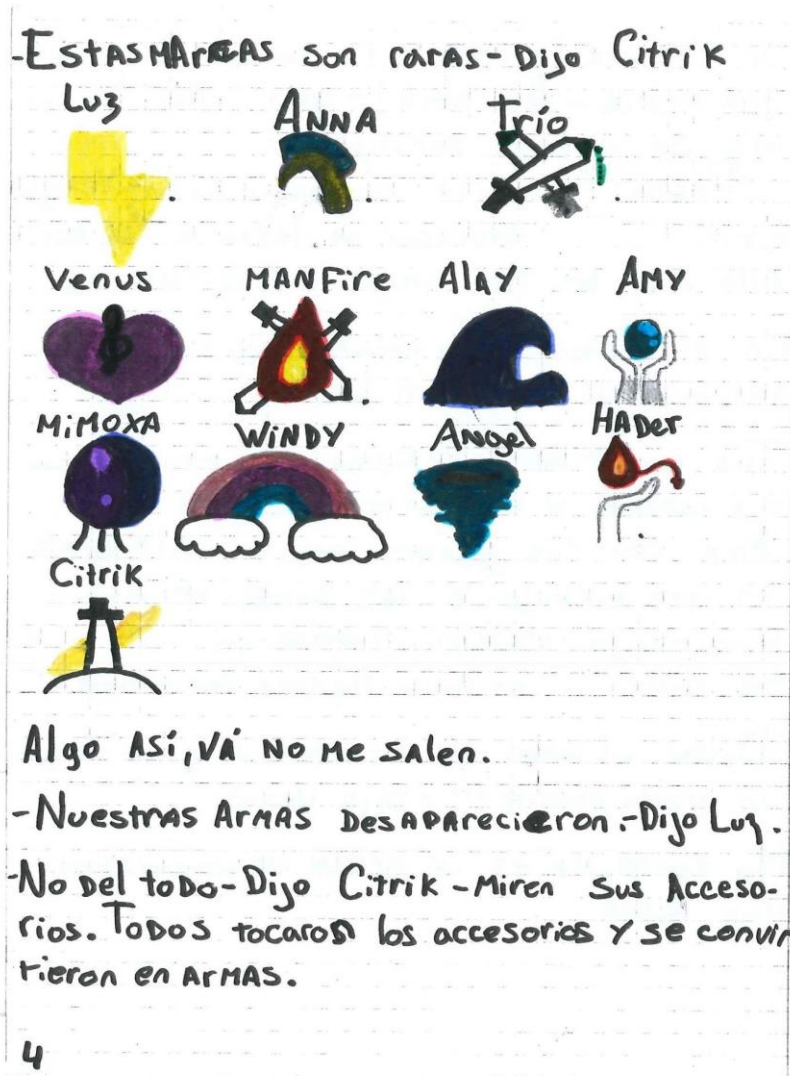 -Estas marcas son raras-Dijo Citrik
Luz Anna Trío
Venus Manfire Alay Amy
Mimoxa Windy Angel Hader
Citrik
Algo así, vá no me salen.
-Nuestras armas desaparecieron.-Dijo Luz.
-No del todo-Dijo Citrik-Miren sus acceso-
rios. Todos tocaron los accesorios y se convir
tieron en armas.
4